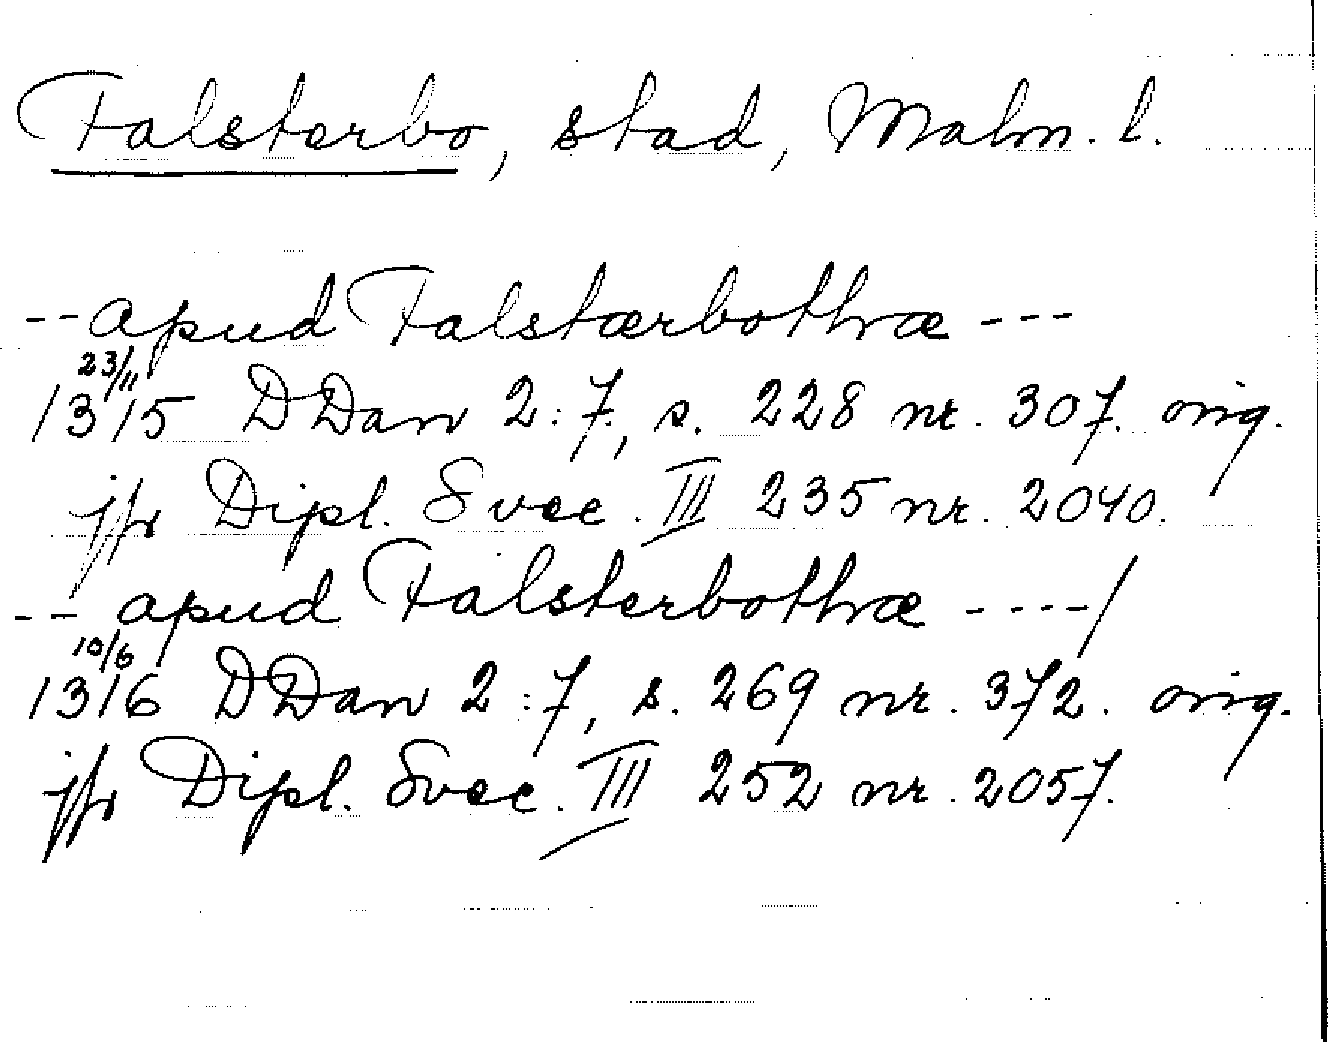 Falsterbo, stad, Malm. l.
-- apud Falstærbothræ ---
23/11
1315 DDan 2:7, s. 228 nr. 307. orig.
jfr Dipl. Svec. III 235 nr. 2040.
-- apud Falsterbothræ ----/
10/6
1316 DDan 2:7, s. 269 nr. 372. orig.
jfr Dipl. Svec. III 252 nr. 2057.